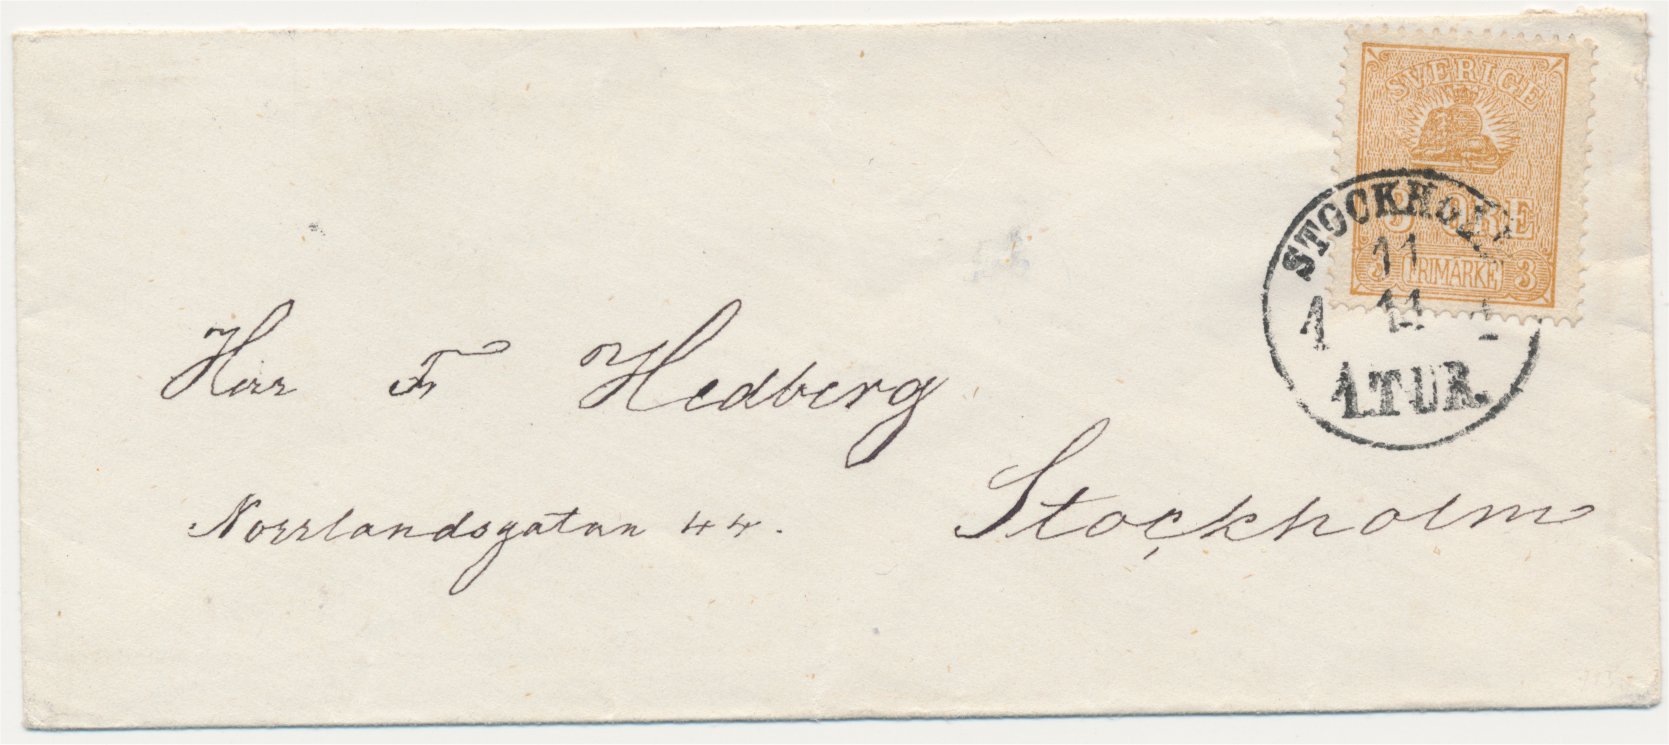 SVERIGE
3 ÖRE
3 FRIMÄRKE 3
STOCKHOLM
11
1 11 1
1.TUR.
Herr F Hedberg
Norrlandsgatan 44.
Stockholm